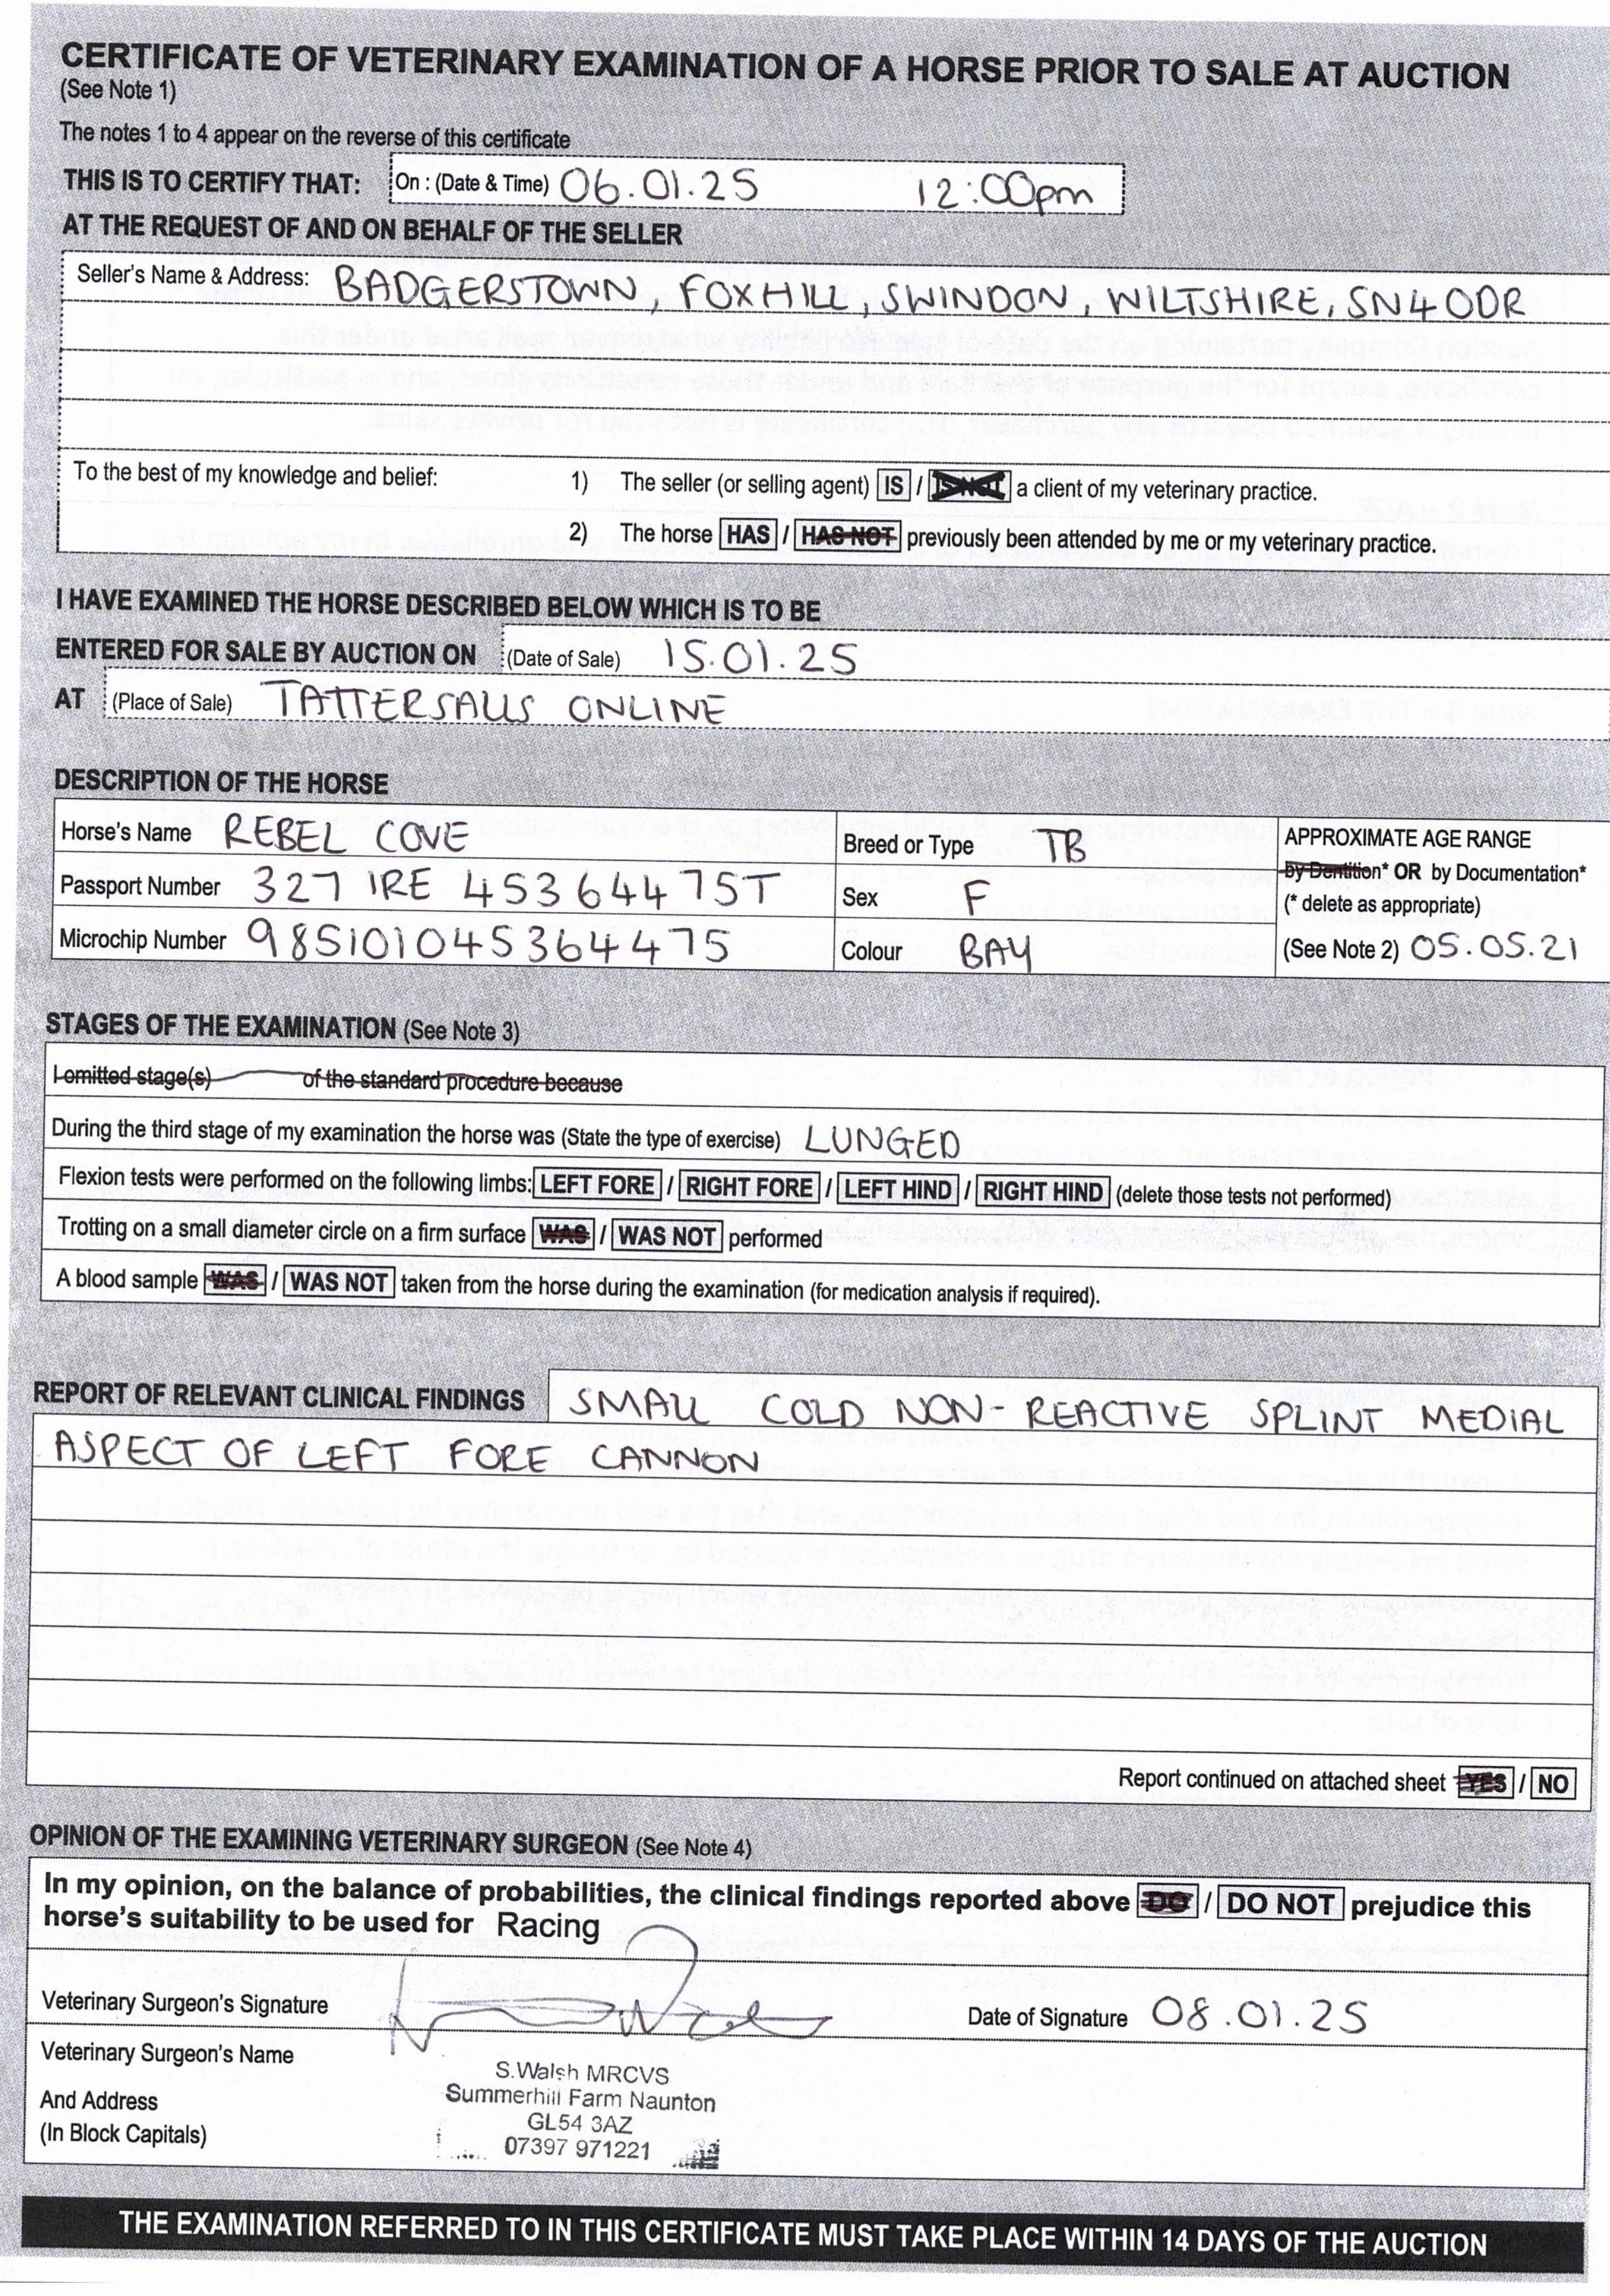 CERTIFICATE OF VETERINARY EXAMINATION OF A HORSE PRIOR TO SALE AT AUCTION
(See Note 1)
The notes 1 to 4 appear on the reverse of this certificate
THIS IS TO CERTIFY THAT: On : (Date & Time) 06.01.25 12:00pm
AT THE REQUEST OF AND ON BEHALF OF THE SELLER
Seller's Name & Address: BADGERSTOWN, FOXHILL, SWINDON, WILTSHIRE, SN4 0DR
To the best of my knowledge and belief: 1) The seller (or selling agent) IS / IS NOT a client of my veterinary practice.
2) The horse HAS / HAS NOT previously been attended by me or my veterinary practice.
I HAVE EXAMINED THE HORSE DESCRIBED BELOW WHICH IS TO BE
ENTERED FOR SALE BY AUCTION ON (Date of Sale) 15.01.25
AT (Place of Sale) TATTERSALLS ONLINE
DESCRIPTION OF THE HORSE
Horse's Name REBEL COVE
Passport Number 327 IRE 45364475T
Microchip Number 985101045364475
Breed or Type TB
Sex F
Colour BAY
APPROXIMATE AGE RANGE
by Dentition* OR by Documentation*
(* delete as appropriate)
(See Note 2) 05.05.21
STAGES OF THE EXAMINATION (See Note 3)
I omitted stage(s) of the standard procedure because
During the third stage of my examination the horse was (State the type of exercise) LUNGED
Flexion tests were performed on the following limbs: LEFT FORE / RIGHT FORE / LEFT HIND / RIGHT HIND (delete those tests not performed)
Trotting on a small diameter circle on a firm surface WAS / WAS NOT performed
A blood sample WAS / WAS NOT taken from the horse during the examination (for medication analysis if required).
REPORT OF RELEVANT CLINICAL FINDINGS SMALL COLD NON-REACTIVE SPLINT MEDIAL
ASPECT OF LEFT FORE CANNON
Report continued on attached sheet YES / NO
OPINION OF THE EXAMINING VETERINARY SURGEON (See Note 4)
In my opinion, on the balance of probabilities, the clinical findings reported above DO / DO NOT prejudice this
horse's suitability to be used for Racing
Veterinary Surgeon's Signature
Date of Signature 08.01.25
Veterinary Surgeon's Name
And Address
(In Block Capitals)
S.Walsh MRCVS
Summerhill Farm Naunton
GL54 3AZ
07397 971221
THE EXAMINATION REFERRED TO IN THIS CERTIFICATE MUST TAKE PLACE WITHIN 14 DAYS OF THE AUCTION